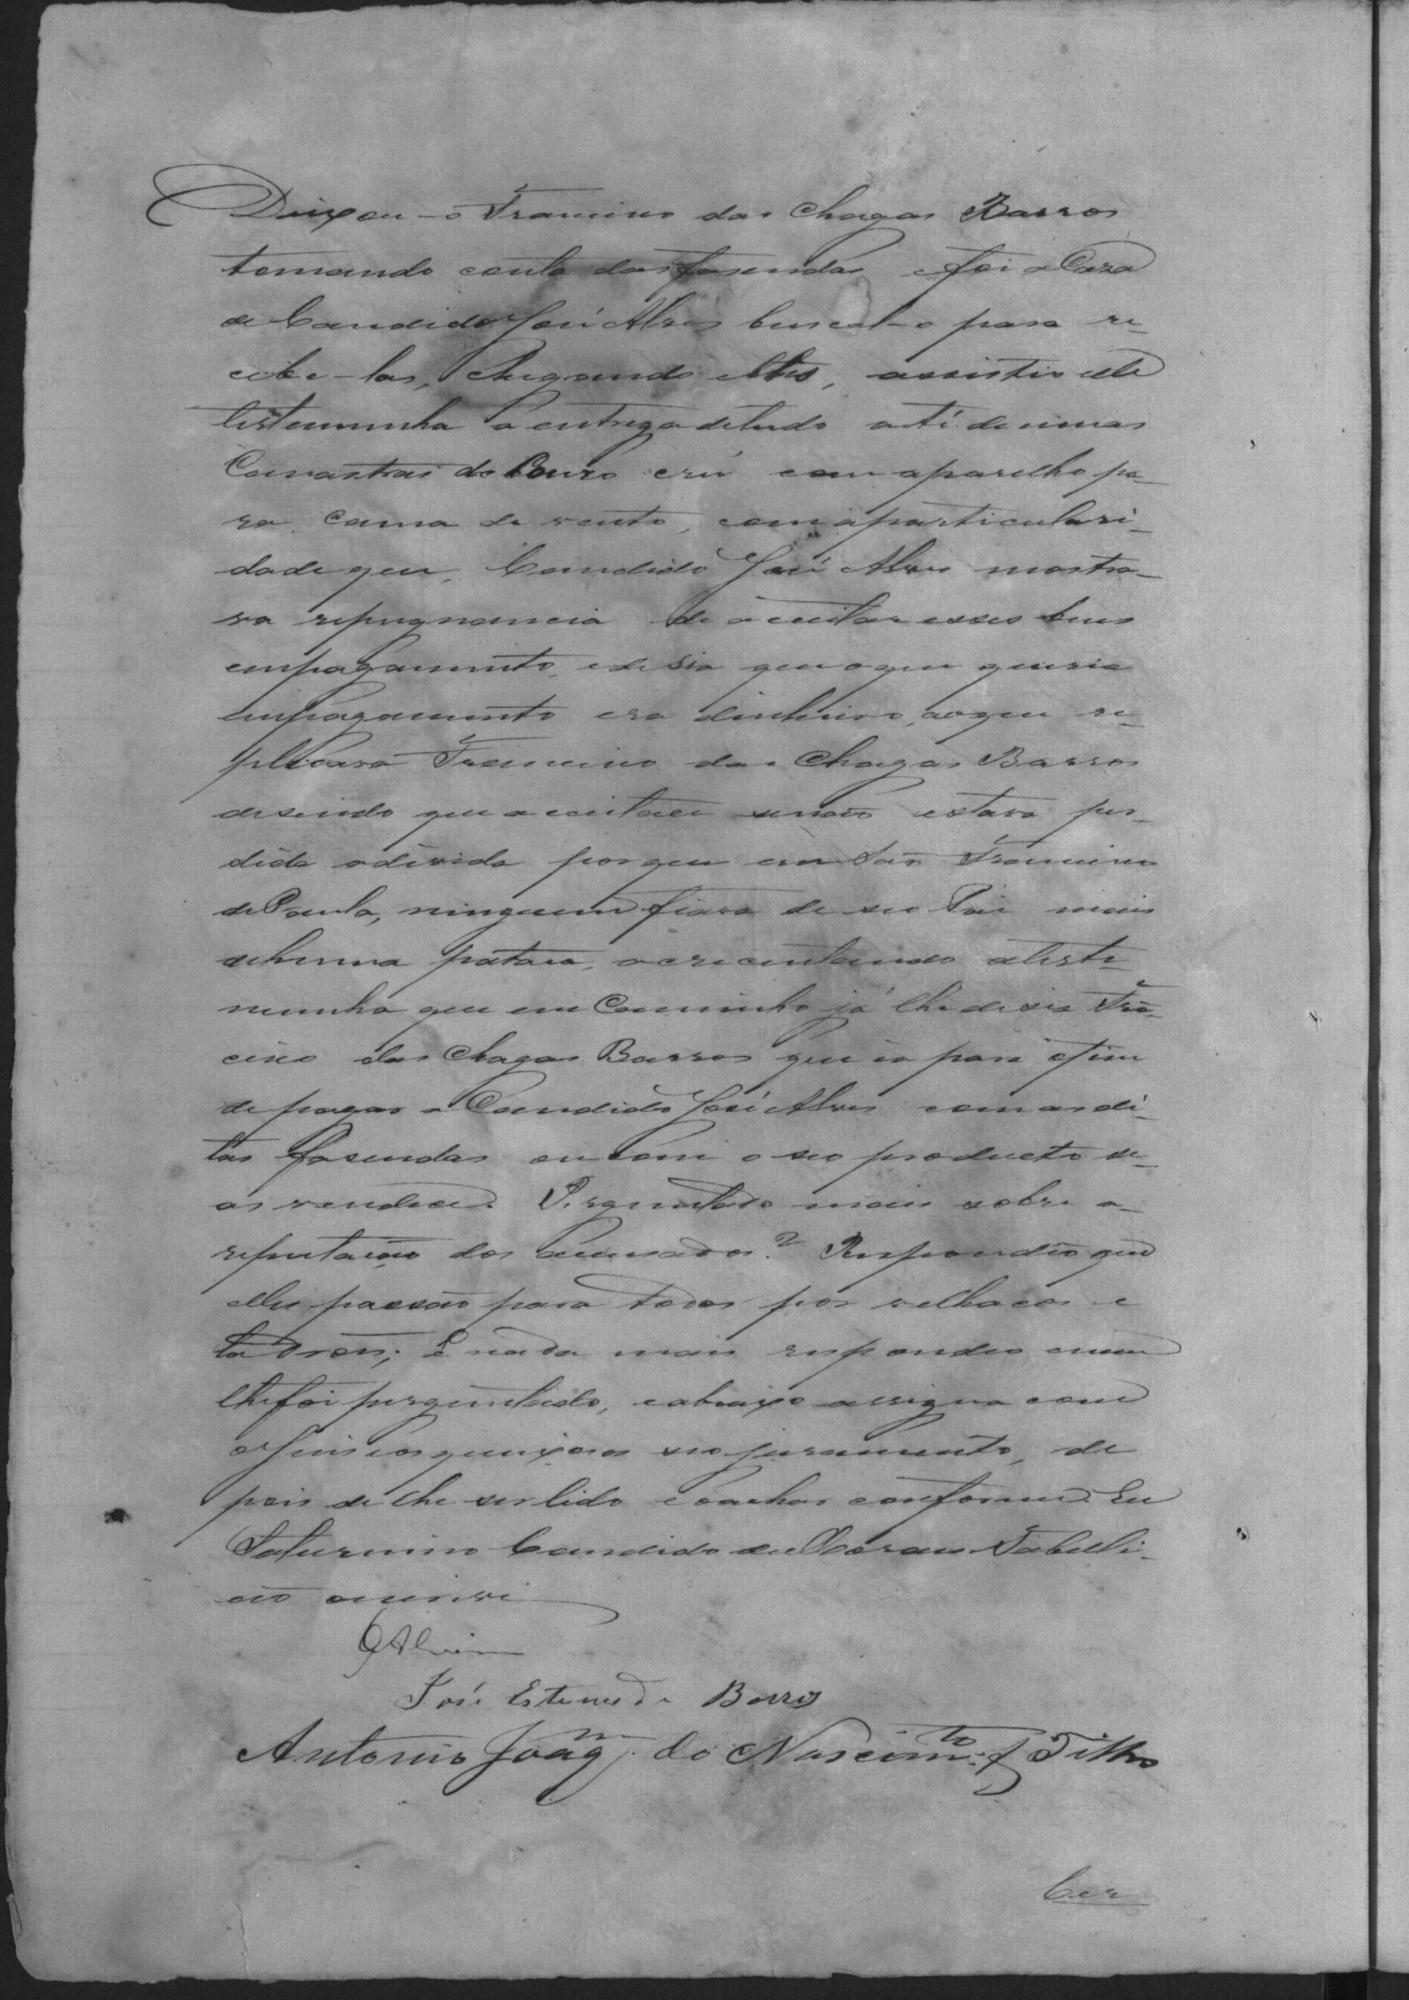 Deixou-o Francisco das Chagas Barros
tomando conta das fasendas e foi a Casa
de Candido José Alves buscal-o para re-
cebe-las, chegando elles, assistio elle
testemunha a entrega de tudo até de umas
Canastras de Couro crú com aparelho pa-
ra cama de vento, com a particulari-
dade que, Candido José Alves mostra-
va repugnancia de aceitar esses bens
em pagamento, e desia que o que queria
em pagamento era dinheiro, ao que re-
plicava Francisco das Chagas Barros
desendo que aceitace senão estava per-
dida a divida porque em São Francisco
de Paula, ninguem fiava de seo Pai mais
de huma pataca, acrecentando a teste-
munha que em Caminho já lhe desia Frã-
cisco das Chagas Barros que ia para o fim
de pagar a Candido José Alves com as di-
tas fasendas ou com o seo producto se
as vendece. Perguntado mais sobre a
reputação dos acusados? Respondeo que
elles passão para todos por velhacos e
ladrões; E nada mais respondeo e nem
lhe foi perguntado, e abaixo assigna com
o Juis e os queixosos seo juramento, de
pois de lhe ser lido e o achar conforme. Eu
Saturnino Candido de Moraes Tabelli-
ão escrivi
José Esteves de Barros
Antonio Joaqm. do Nascimto. Filho
Cer